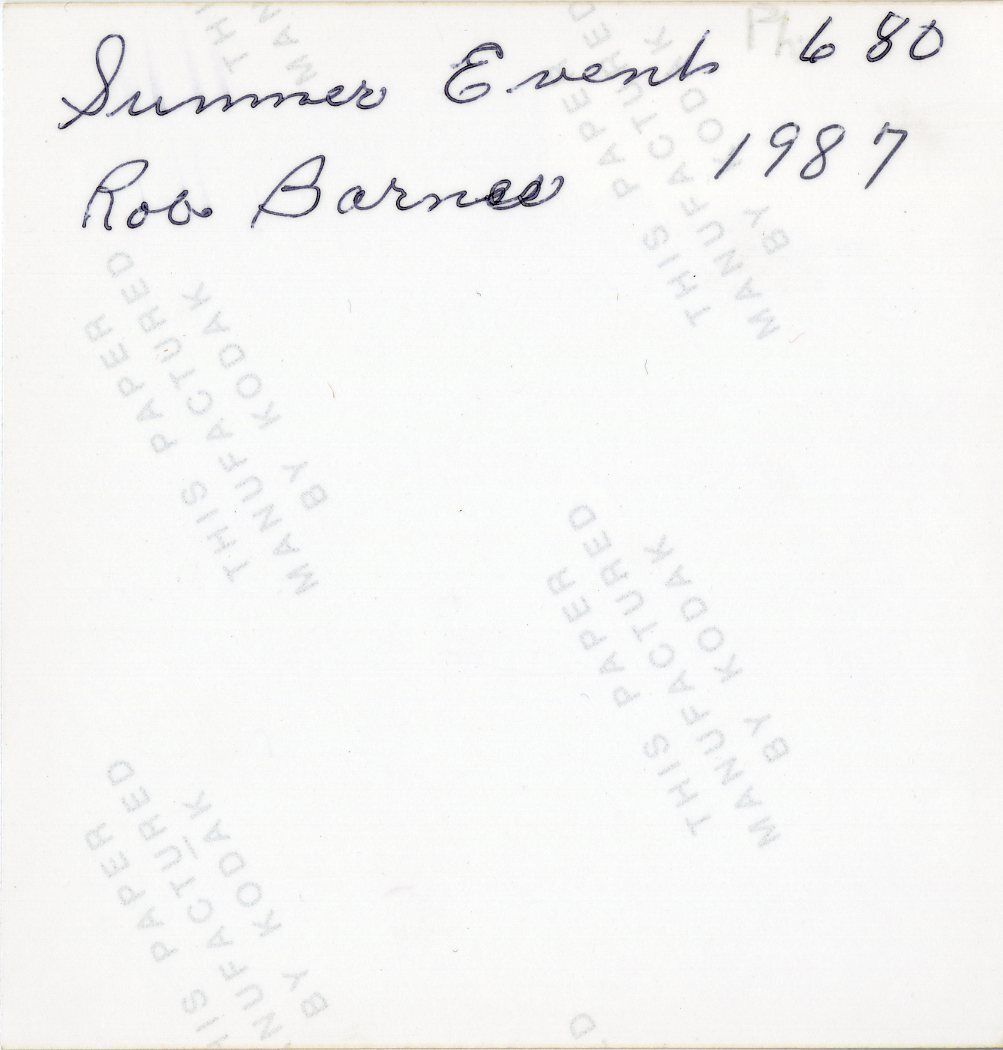 Summer Events 680
Rob Barnes 1987
THIS PAPER
MANUFACTURED
BY KODAK
THIS PAPER
MANUFACTURED
BY KODAK
THIS PAPER
MANUFACTURED
BY KODAK
THIS PAPER
MANUFACTURED
BY KODAK